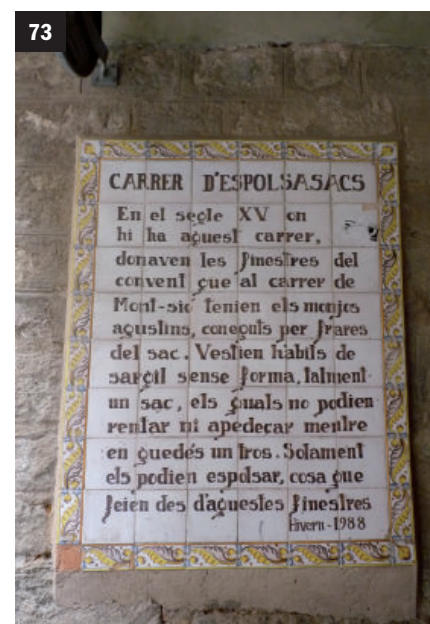 73
CARRER D'ESPOLSASACS
En el segle XV on
hi ha aquest carrer,
donaven les finestres del
convent que al carrer de
Mont-sió tenien els monjos
agustins, coneguts per frares
del sac. Vestien hàbits de
sargil sense forma, talment
un sac, els quals no podien
rentar ni apedeçar mentre
en quedés un tros. Solament
els podien espolsar, cosa que
feien des d'aquestes finestres
Hivern-1988